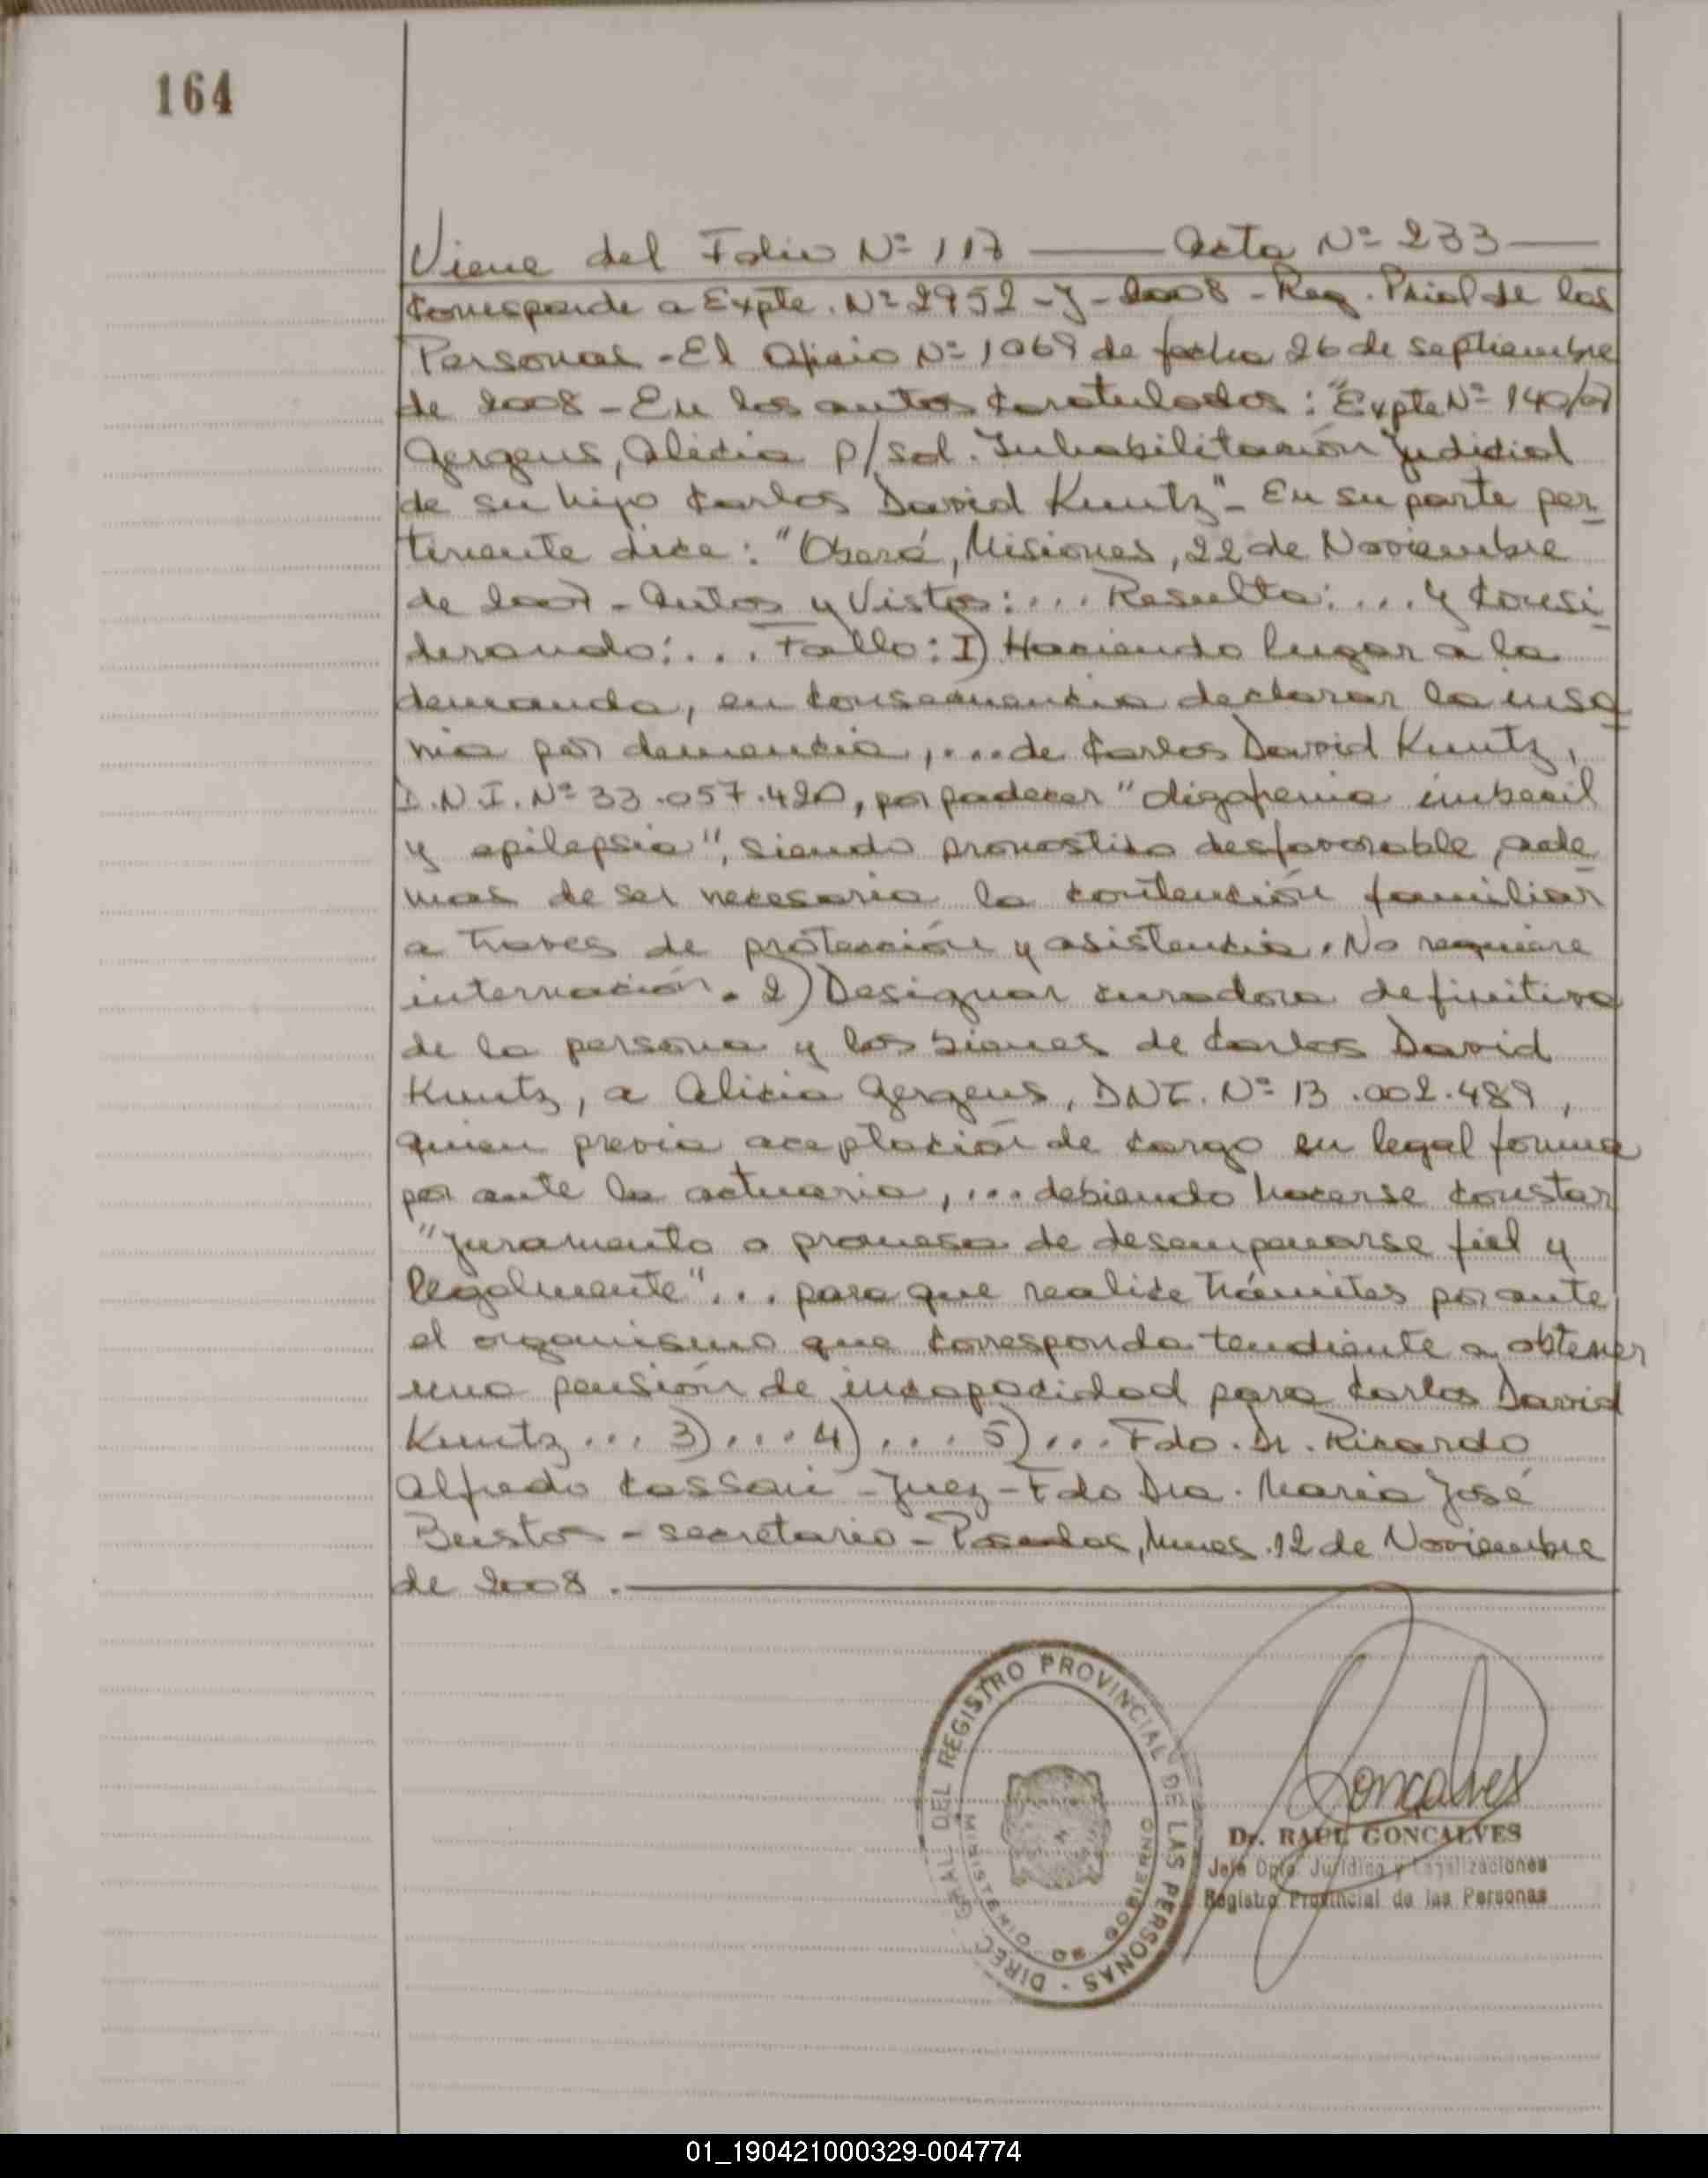 164
Viene del Folio Nº 117 —— Acta Nº 233 ——
Corresponde a Expte. Nº 2952-J-2008 - Reg. Pcial de las
Personas - El Oficio Nº 1069 de fecha 26 de septiembre
de 2008 - En los autos Caratulados: "Expte Nº 140/07
Gergeus, Alicia p/sol. Inhabilitación Judicial
de su hijo Carlos David Kuntz" - En su parte per
tinente dice: "Oberá, Misiones, 22 de Noviembre
de 2007 - Autos y Vistos: ... Resulta: ... y Consi
derando: ... Fallo: I) Haciendo lugar a la
demanda, en consecuencia declarar la insa
nia por demencia, .... de Carlos David Kuntz,
D.N.I. Nº 33.057.420, por padecer "oligofrenia imbecil
y epilepsia", siendo pronostico desfavorable, ade
mas de ser necesaria la contención familiar
a traves de protección y asistencia. No requiere
internación. 2) Designar curadora definitiva
de la persona y los bienes de Carlos David
Kuntz, a Alicia Gergeus, DNI. Nº 13.002.489,
quien previa aceptación de cargo en legal forma
por ante la actuaria, ... debiendo hacerse constar
"juramento o promesa de desempeñarse fiel y
legalmente" ... para que realice trámites por ante
el organismo que corresponda tendiente a obtener
una pensión de incapacidad para Carlos David
Kuntz ... 3) .... 4) .... 5) ... Fdo. Dr. Ricardo
Alfredo Cassoni - Juez - Fdo Dra. Maria José
Bustos - secretario - Posadas, Mnes. 12 de Noviembre
de 2008. ——
DIREC. GRAL. DEL REGISTRO PROVINCIAL DE LAS PERSONAS -
MINISTERIO DE GOBIERNO
Goncalves
Dr. RAUL GONCALVES
Jefe Dpto. Jurídico y Legalizaciones
Registro Provincial de las Personas
01_190421000329-004774